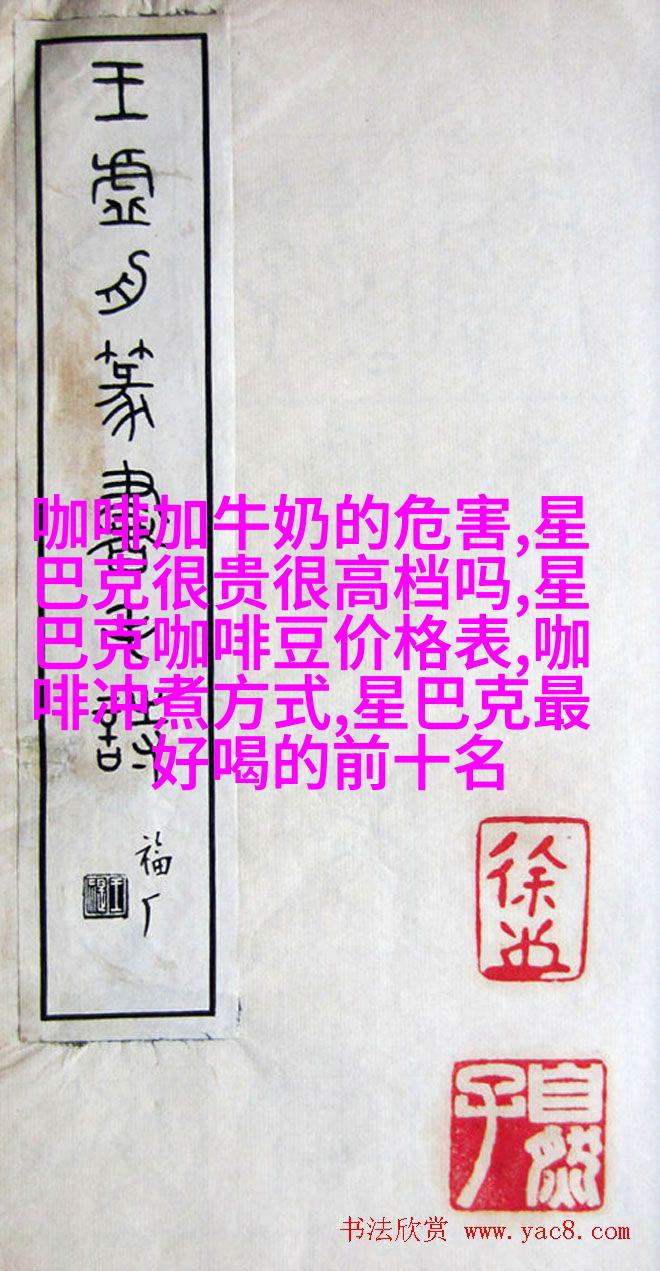 王虛舟篆書
福厂
咖啡加牛奶的危害,星
巴克很贵很高档吗,星
巴克咖啡豆价格表,咖
啡冲煮方式,星巴克最
好喝的前十名
自然子
书法欣赏 www.yac8.com